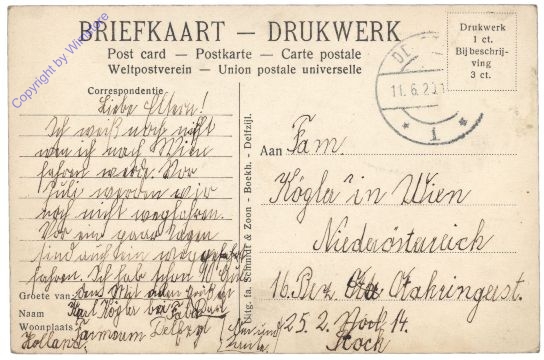 BRIEFKAART — DRUKWERK
Post card — Postkarte — Carte postale
Weltpostverein — Union postale universelle
Drukwerk
1 ct.
Bij beschrij-
ving
3 ct.
Copyright by
11.6.20
1
Correspondentie
Liebe Eltern!
Ich weiß noch nicht
wan ich nach Wien
fahren werde. Vor
Juli werden wir
noch nicht wegfahren.
Vor ein paar Tagen
sind auch
fahren. Ich hab schon
Groete van
Naam Karl Kögler bei
Woonplaats Delfzyl
Holland
Uitg. fa. Schmidt & Zoon - Boekh. - Delfzijl.
Aan Fam.
Kögler in Wien
Niederöstereich
16. Bez. Otakringerst.
25. 2. Stock 14.
Stock